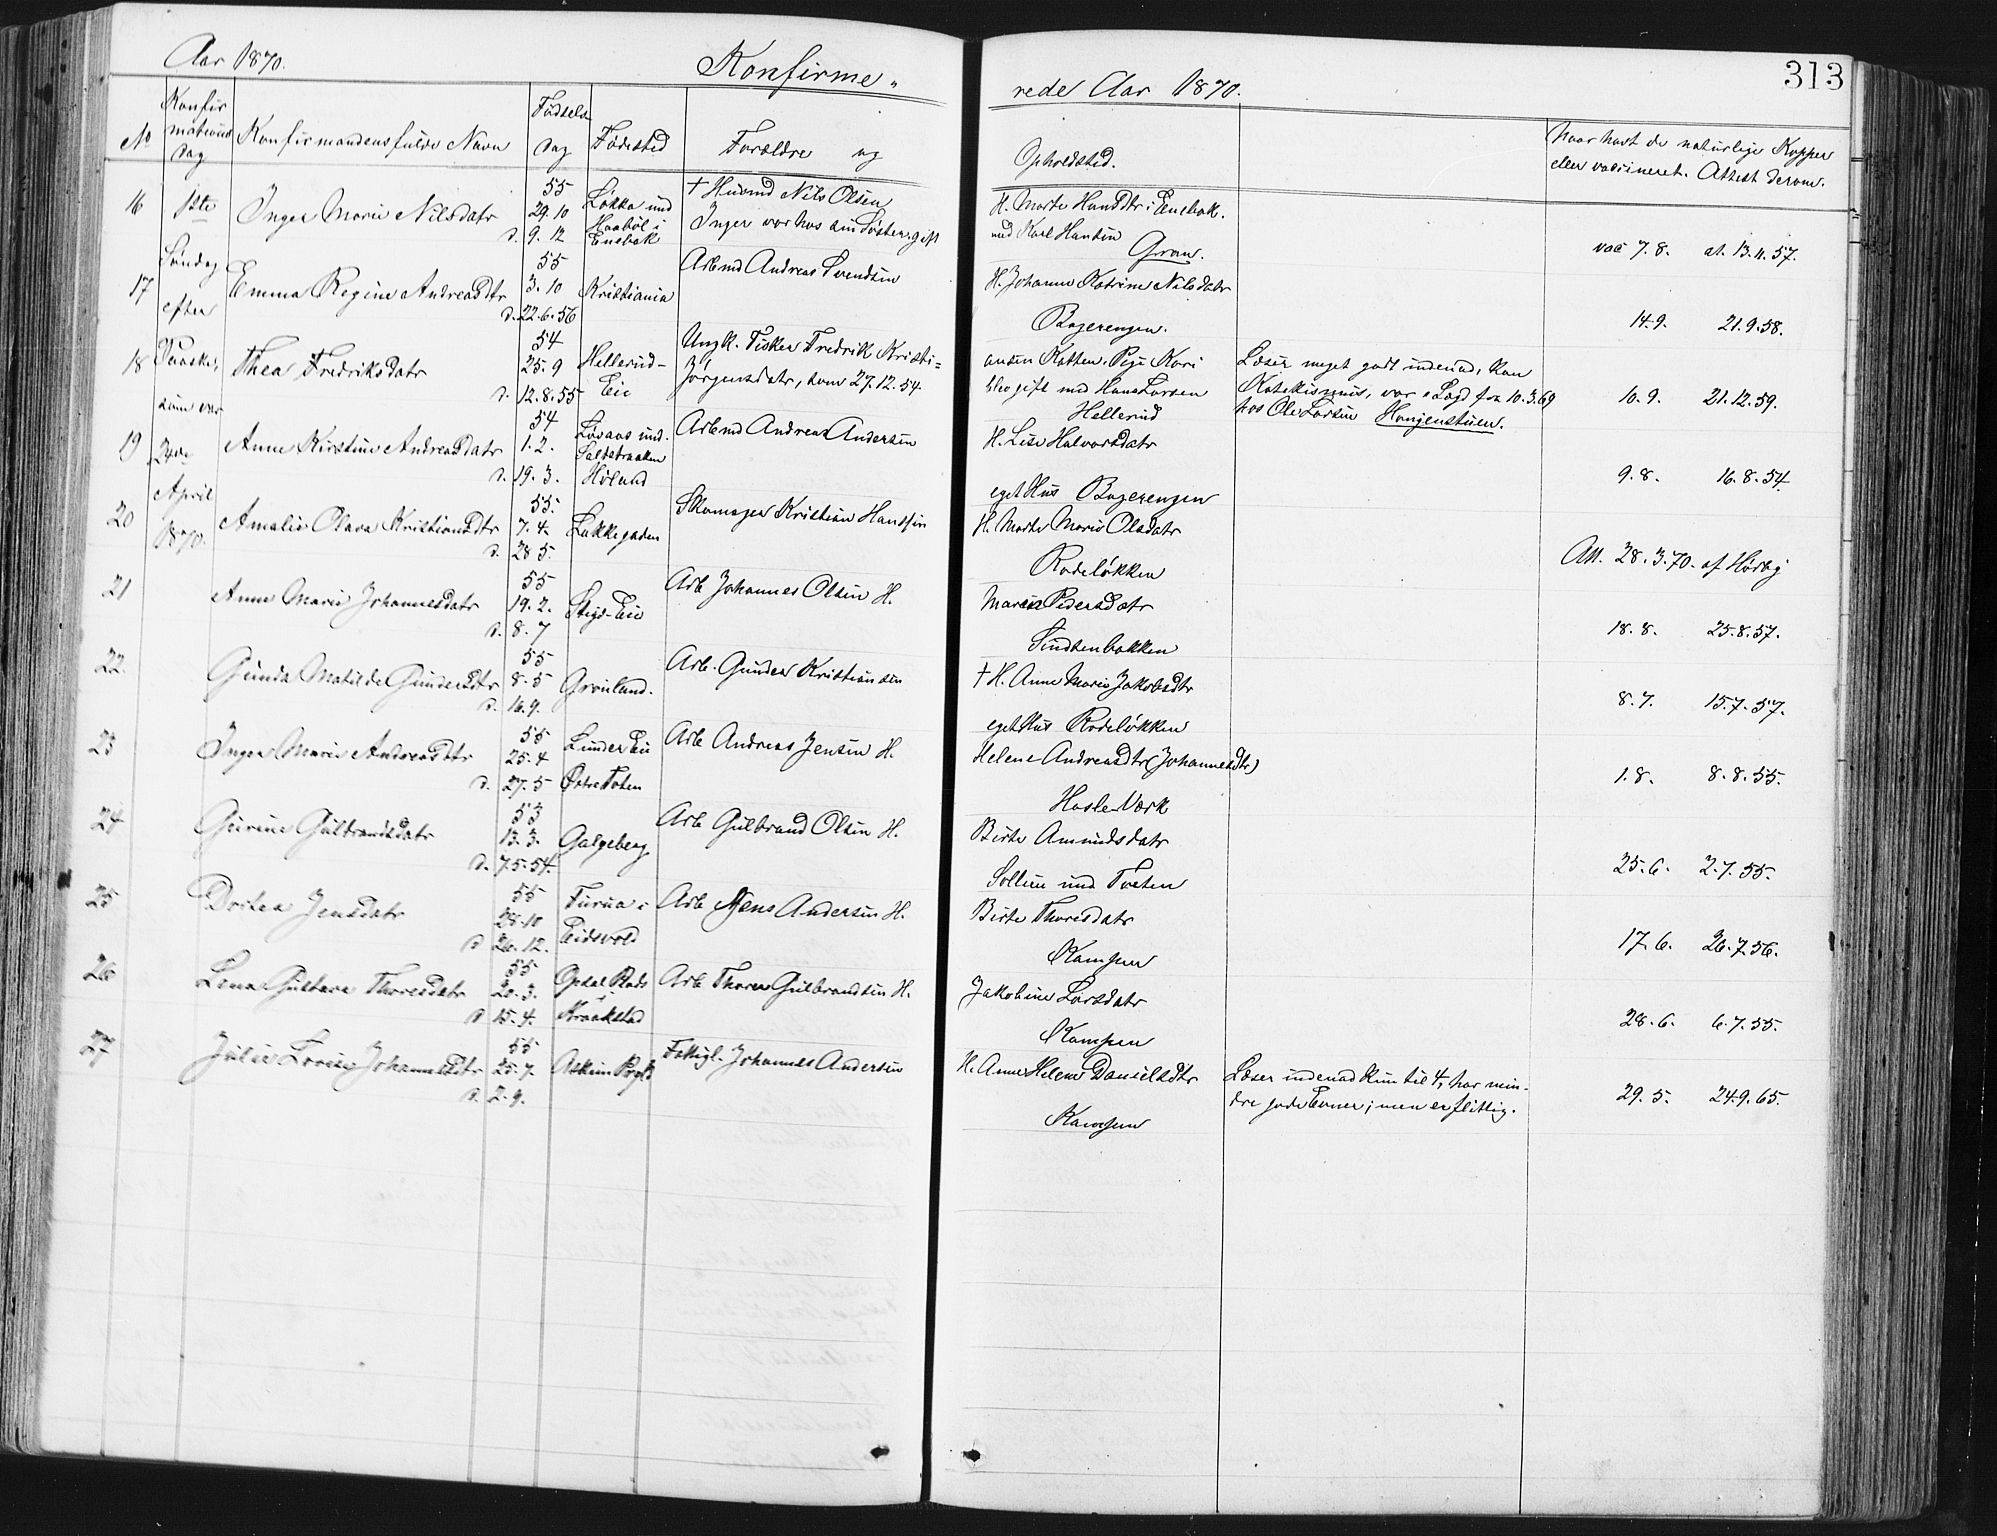 Aar 1870.
Konfirme-
rede Aar 1870.
313
No
Konfir
mations
dag
Konfirmandens fulde Navn
Fødsels
dag
Fødested
Forældre og
Opholdsted.
Naar havt de naturlige Kopper
eller vaccineret. Attest derom.
1ste
Søndag
efter
Paaske,
som var
April
1870.
16
Inger Marie Nilsdatr
55
29.10
d. 9.12
Løkka und
Haabøl i
Enebak
† Husmd Nils Olsen
Inger var hos sin Søster, gift
H. Marte Hansdtr i Enebak.
med Karl Hansen
Grav.
vac 7.8. at. 13.11.57.
17
Emma Regine Andreasdtr
55
3.10
d. 22.6.56
Kristiania
Arbmd Andreas Svendsen
H. Johanne Katrine Nilsdatr
Bagerengen.
14.9. 21.9.58.
18
Thea Fredriksdatr
54
25.9
d. 12.8.55
Hellerud-
Eie
Ungk. Fisker Fredrik Kristi-
Jørgensdatr, som 27.12.54.
ansen Katten. Pige Kari
blev gift med Hans Larsen
Hellerud
Læser meget godt indenad, kan
Katekismus, var i Lagd fra 10.3.69
hos Ole Larsen Haugenstuen.
10.9. 21.12.59.
19
Anne Kirstine Andreasdatr
54
1.2.
d. 19.3.
Høland
Arbmd Andreas Andersen
H. Lise Halvorsdatr
eget Hus Bagerengen
9.8. 16.8.54.
20
Amalie Olava Kristiansdtr
55.
7.4.
d. 28.5.
Lakkegaden
Skomager Kristian Hanssen
H. Marte Marie Olsdatr
Rodeløkken
Att. 28.3.70. af Hørbÿ
21
Anne Marie Johannesdatr
55
19.2.
d. 8.7
Stigs-Eie
Arb Johannes Olsen H.
Maria Pedersdatr
Sindsenbakken
18.8. 25.8.57.
22.
Gunda Matilde Gundersdtr
55
8.5
d. 16.9.
Grønland.
Arb. Gunder Kristiansen
† H. Anne Marie Jakobsdtr
eget Hus Rodeløkken
8.7. 15.7.57.
23
Inger Marie Andreasdtr
55
25.4
d. 27.5
Lunder Eie
Østre Toten
Arb Andreas Jensen H.
Helene Andreasdtr (Johannesdtr)
Hasle Værk
1.8. 8.8.55.
24
Gurine Gulbrandsdatr
53
13.3.
d. 7.5.54.
Galgeberg
Arb Gulbrand Olsen H.
Birte Amundsdatr
Sollien und Tveten
25.6. 2.7.55.
25
Dortea Jensdatr
55
28.10
d 26.12.
Furua i
Eidsvold
Arb Jens Andersen H.
Birte Thoresdatr
Kampen
17.6. 26.7.56.
26
Lena Gustava Thoresdatr
55
20.3.
d 15.4.
Opsal Plads
i
Kraakstad
Arb Thore Gulbrandsen H.
Jakobine Larsdatr
Kampen
28.6. 6.7.55.
27
Julie Lovise Johannesdtr
55
25.7.
d. 2.9.
Askim Prgld
Fattigl. Johannes Andersen
H. Anne Helene Danielsdtr
Kampen
Læser indenad kun til 4, har min-
dre gode Evner; men er flittig.
29.5. 24.9.65.